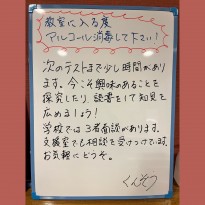 教室に入る度
アルコール消毒して下さい！
次のテストまで少し時間があり
ます。今こそ興味のあることを
探究したり、読書をして知見を
広めましょう！
学校では3者面談があります。
文援室でも相談を受けつけています。
お気軽にどうぞ。
くんぞう